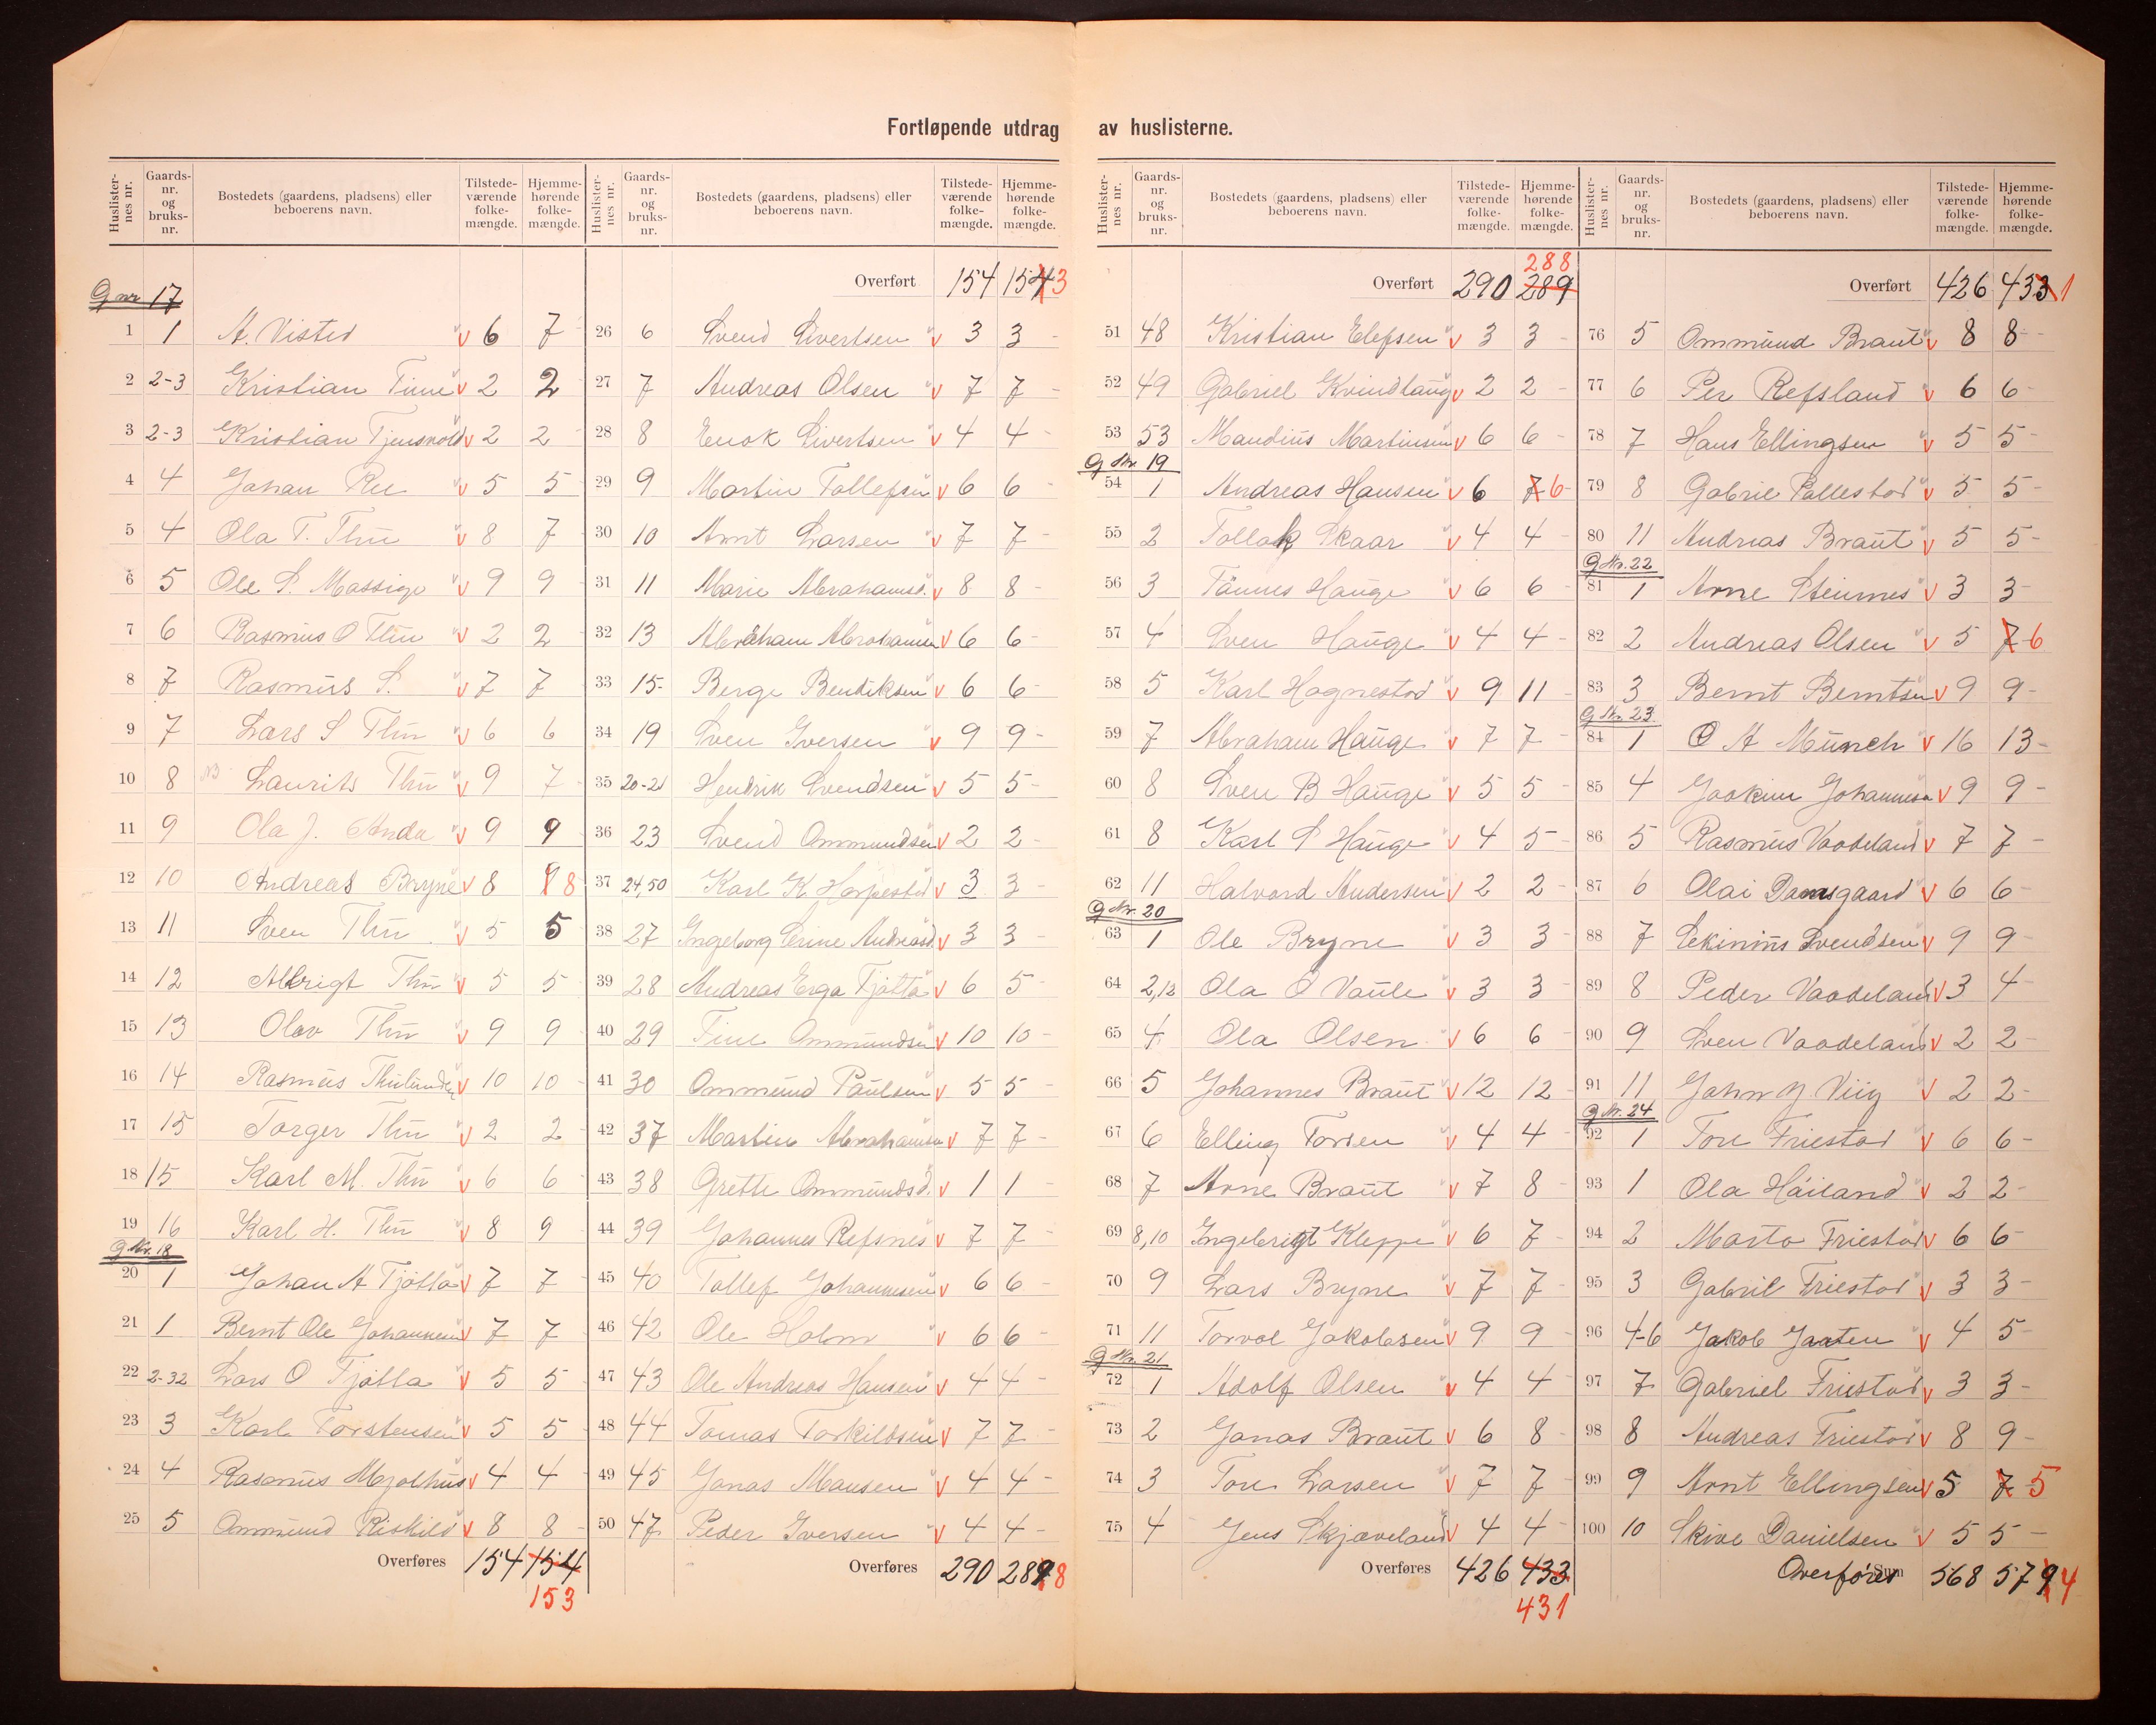 Fortløpende utdrag av huslisterne.
Huslisternes nr. Gaards-nr. og bruks-nr. Bostedets (gaardens, pladsens) eller beboerens navn. Tilstedeværende folkemængde. Hjemmehørende folkemængde.
G nr 17
1 1 A. Visted 6 7
2 2-3 Kristian Time 2 2
3 2-3 Kristian Tjensvold 2 2
4 4 Johan Ree 5 5
5 4 Ola T. Thu 8 7
6 5 Ole S. Massige 9 9
7 6 Rasmus O Thu 2 2
8 7 Rasmus S. 7 7
9 7 Lars S Thu 6 6
10 8 NB Laurits Thu 9 7
11 9 Ola J. Anda 9 9
12 10 Andreas Bryne 8 8
13 11 Sven Thu 5 5
14 12 Albrigt Thu 5 5
15 13 Olav Thu 9 9
16 14 Rasmus Thulunden 10 10
17 15 Torger Thu 2 2
18 15 Karl M. Thu 6 6
19 16 Karl H. Thu 8 9
G Nr. 18
20 1 Johan A Tjøtta 7 7
21 1 Bernt Ole Johannesen 7 7
22 2-32 Lars O Tjøtta 5 5
23 3 Karl Torstensen 5 5
24 4 Rasmus Mjølhus 4 4
25 5 Ommund Riskild 8 8
Overføres 154 154
153
Huslisternes nr. Gaards-nr. og bruks-nr. Bostedets (gaardens, pladsens) eller beboerens navn. Tilstedeværende folkemængde. Hjemmehørende folkemængde.
Overført 154 154 3
26 6 Svend Sivertsen 3 3
27 7 Andreas Olsen 7 7
28 8 Enok Sivertsen 4 4
29 9 Martin Tollefsen 6 6
30 10 Arnt Larsen 7 7
31 11 Marie Abrahamsd. 8 8
32 13 Abraham Abrahamsen 6 6
33 15 Berge Bendiksen 6 6
34 19 Sven Iversen 9 9
35 20-21 Hendrik Svendsen 5 5
36 23 Svend Ommundsen 2 2
37 24,50 Karl K Horpestad 3 3
38 27 Ingeborg Serine Andreasd. 3 3
39 28 Andreas Erga Tjøtta 6 5
40 29 Tine Ommundsen 10 10
41 30 Ommund Paulsen 5 5
42 37 Martin Abrahamsen 7 7
43 38 Grette Ommundsd. 1 1
44 39 Johannes Refsnes 7 7
45 40 Tollef Johannesen 6 6
46 42 Ole Holm 6 6
47 43 Ole Andreas Hansen 4 4
48 44 Tomas Torkildsen 7 7
49 45 Jonas Mausen 4 4
50 47 Peder Iversen 4 4
Overføres 290 289 8
Huslisternes nr. Gaards-nr. og bruks-nr. Bostedets (gaardens, pladsens) eller beboerens navn. Tilstedeværende folkemængde. Hjemmehørende folkemængde.
288
Overført 290 289
51 48 Kristian Elefsen 3 3
52 49 Gabriel Kvindlaug 2 2
53 53 Maudius Martinsen 6 6
G Nr. 19
54 1 Andreas Hansen 6 7 6
55 2 Tollak Skaar 4 4
56 3 Tønnes Hauge 6 6
57 4 Sven Hauge 4 4
58 5 Karl Hognestad 9 11
59 7 Abraham Hauge 7 7
60 8 Sven B Hauge 5 5
61 8 Karl S Hauge 4 5
62 11 Halvard Andersen 2 2
G Nr. 20
63 1 Ole Bryne 3 3
64 2,12 Ola O Vaule 3 3
65 4 Ola Olsen 6 6
66 5 Johannes Braut 12 12
67 6 Elling Torsen 4 4
68 7 Arne Braut 7 8
69 8,10 Ingebrigt Kleppe 6 7
70 9 Lars Bryne 7 7
71 11 Torvol Jakobsen 9 9
G Nr. 21
72 1 Adolf Olsen 4 4
73 2 Jonas Braut 6 8
74 3 Tore Larsen 7 7
75 4 Jens Skjæveland 4 4
Overføres 426 433
431
Huslisternes nr. Gaards-nr. og bruks-nr. Bostedets (gaardens, pladsens) eller beboerens navn. Tilstedeværende folkemængde. Hjemmehørende folkemængde.
Overført 426 433 1
76 5 Ommund Braut 8 8
77 6 Per Refsland 6 6
78 7 Hans Ellingsen 5 5
79 8 Gabriel Pallestad 5 5
80 11 Andreas Braut 5 5
G Nr. 22
81 1 Arne Steinnes 3 3
82 2 Andreas Olsen 5 7 6
83 3 Bernt Berntsen 9 9
G Nr. 23
84 1 O A Munch 16 13
85 4 Joakim Johannesen 9 9
86 5 Rasmus Vaadeland 7 7
87 6 Olai Damsgaard 6 6
88 7 Sekinius Svendsen 9 9
89 8 Peder Vaadeland 3 4
90 9 Sven Vaadeland 2 2
91 11 John J Viig 2 2
G Nr. 24
92 1 Tore Friestad 6 6
93 1 Ola Høiland 2 2
94 2 Marta Friestad 6 6
95 3 Gabriel Friestad 3 3
96 4-6 Jakob Jaaten 4 5
97 7 Gabriel Friestad 3 3
98 8 Andreas Friestad 8 9
99 9 Arnt Ellingsen 5 7 5
100 10 Skive Danielsen 5 5
Overføres Sum 568 579 4